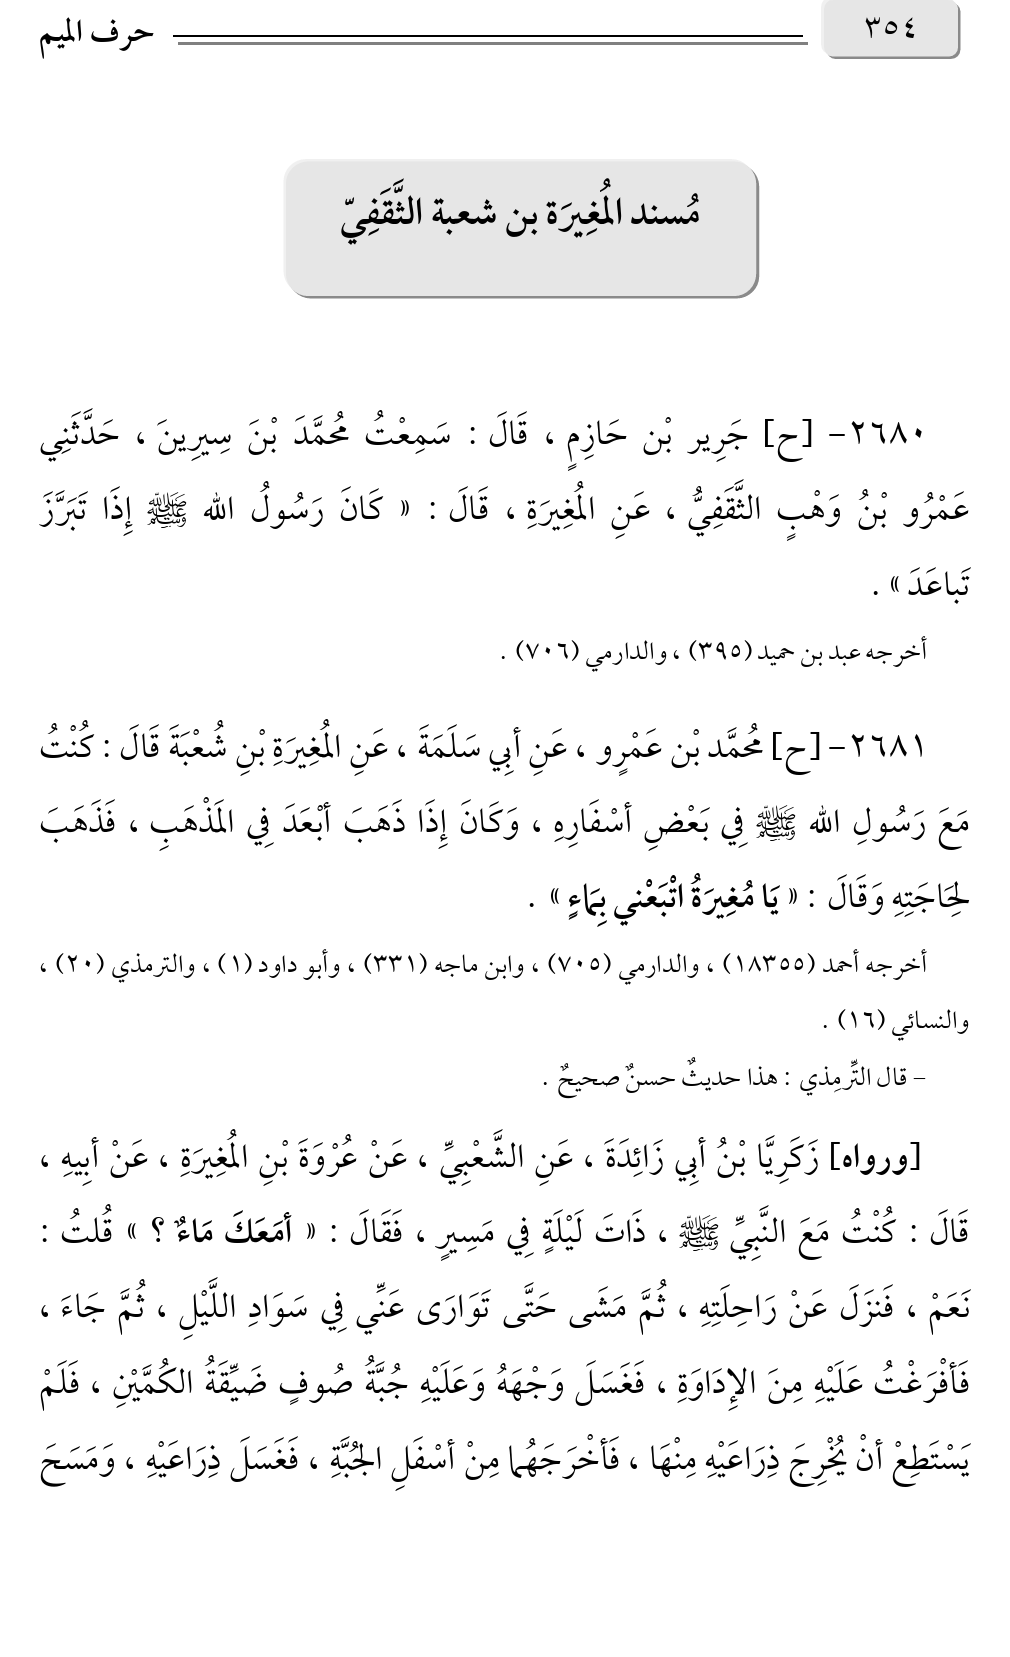 ٣٥٤
حرف الميم
مُسند المُغِيرَة بن شعبة الثَّقَفِيّ
٢٦٨٠- [ح] جَرِير بْن حَازِمٍ ، قَالَ : سَمِعْتُ مُحمَّدَ بْنَ سِيرِينَ ، حَدَّثَنِي
عَمْرُو بْنُ وَهْبٍ الثَّقَفِيُّ ، عَنِ المُغِيرَةِ ، قَالَ : « كَانَ رَسُولُ الله ﷺ إِذَا تَبَرَّزَ
تَباعَدَ » .
أخرجه عبد بن حميد (٣٩٥) ، والدارمي (٧٠٦) .
٢٦٨١- [ح] مُحمَّد بْن عَمْرٍو ، عَنِ أبِي سَلَمَةَ ، عَنِ المُغِيرَةِ بْنِ شُعْبَةَ قَالَ : كُنْتُ
مَعَ رَسُولِ الله ﷺ فِي بَعْضِ أسْفَارِهِ ، وَكَانَ إِذَا ذَهَبَ أبْعَدَ فِي المَذْهَبِ ، فَذَهَبَ
لِحَاجَتِهِ وَقَالَ : « يَا مُغِيرَةُ اتْبَعْني بِمَاءٍ » .
أخرجه أحمد (١٨٣٥٥) ، والدارمي (٧٠٥) ، وابن ماجه (٣٣١) ، وأبو داود (١) ، والترمذي (٢٠) ،
والنسائي (١٦) .
– قال التِّرمِذي : هذا حديثٌ حسنٌ صحيحٌ .
[ورواه] زَكَرِيَّا بْنُ أبِي زَائِدَةَ ، عَنِ الشَّعْبِيِّ ، عَنْ عُرْوَةَ بْنِ المُغِيرَةِ ، عَنْ أبِيهِ ،
قَالَ : كُنْتُ مَعَ النَّبِيِّ ﷺ ، ذَاتَ لَيْلَةٍ فِي مَسِيرٍ ، فَقَالَ : « أمَعَكَ مَاءٌ ؟ » قُلتُ :
نَعَمْ ، فَنزَلَ عَنْ رَاحِلَتِهِ ، ثُمَّ مَشَى حَتَّى تَوَارَى عَنِّي فِي سَوَادِ اللَّيْلِ ، ثُمَّ جَاءَ ،
فَأفْرَغْتُ عَلَيْهِ مِنَ الإِدَاوَةِ ، فَغَسَلَ وَجْهَهُ وَعَلَيْهِ جُبَّةُ صُوفٍ ضَيِّقَةُ الكُمَّيْنِ ، فَلَمْ
يَسْتَطِعْ أنْ يُخْرِجَ ذِرَاعَيْهِ مِنْهَا ، فَأخْرَجَهُما مِنْ أسْفَلِ الجُبَّةِ ، فَغَسَلَ ذِرَاعَيْهِ ، وَمَسَحَ